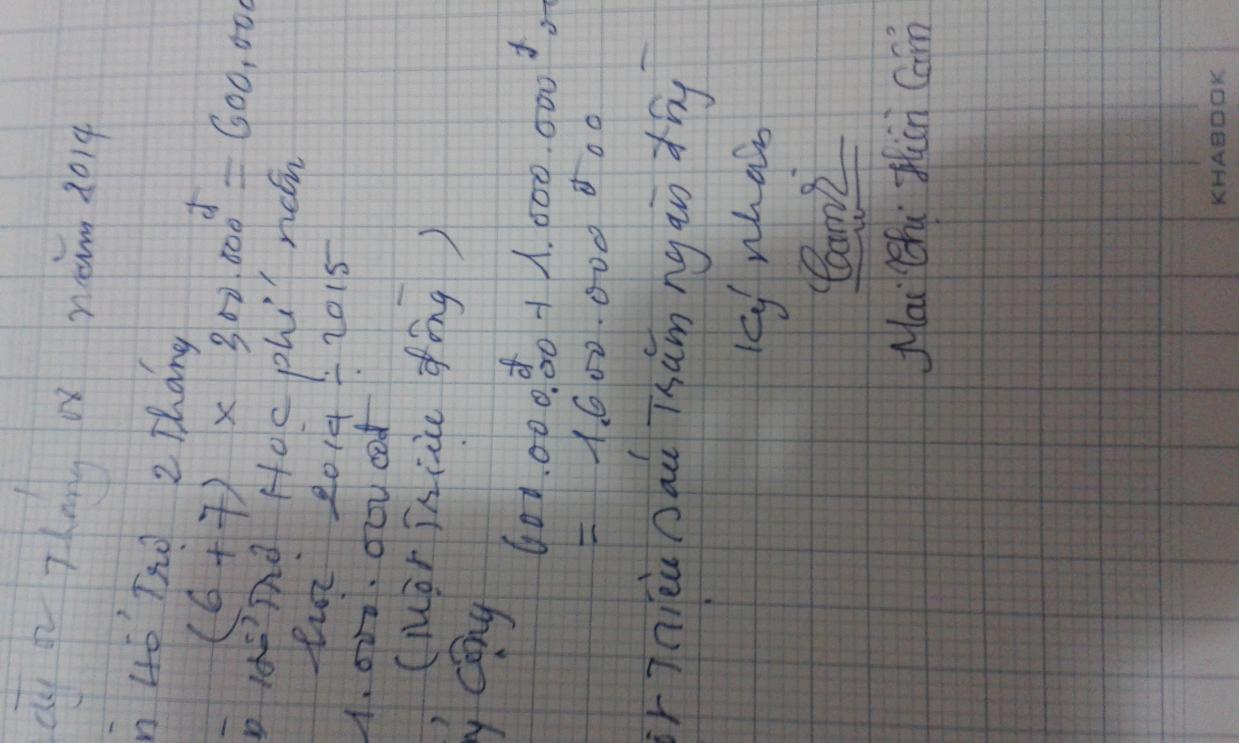 Tháng 08 năm 2014
Hỗ Trợ 2 Tháng
(6 + 7) x 300.000đ = 600,000
Hỗ Trợ Học phí năm
học 2014 - 2015
1.000.000đ
(Một Triệu đồng)
Cộng 600.000đ.00 + 1.000.000đ
= 1.600.000đ00
Triệu Sáu Trăm ngàn đồng
Ký nhận
Cam
Mai Thị Hiền Cầm
KHABOOK